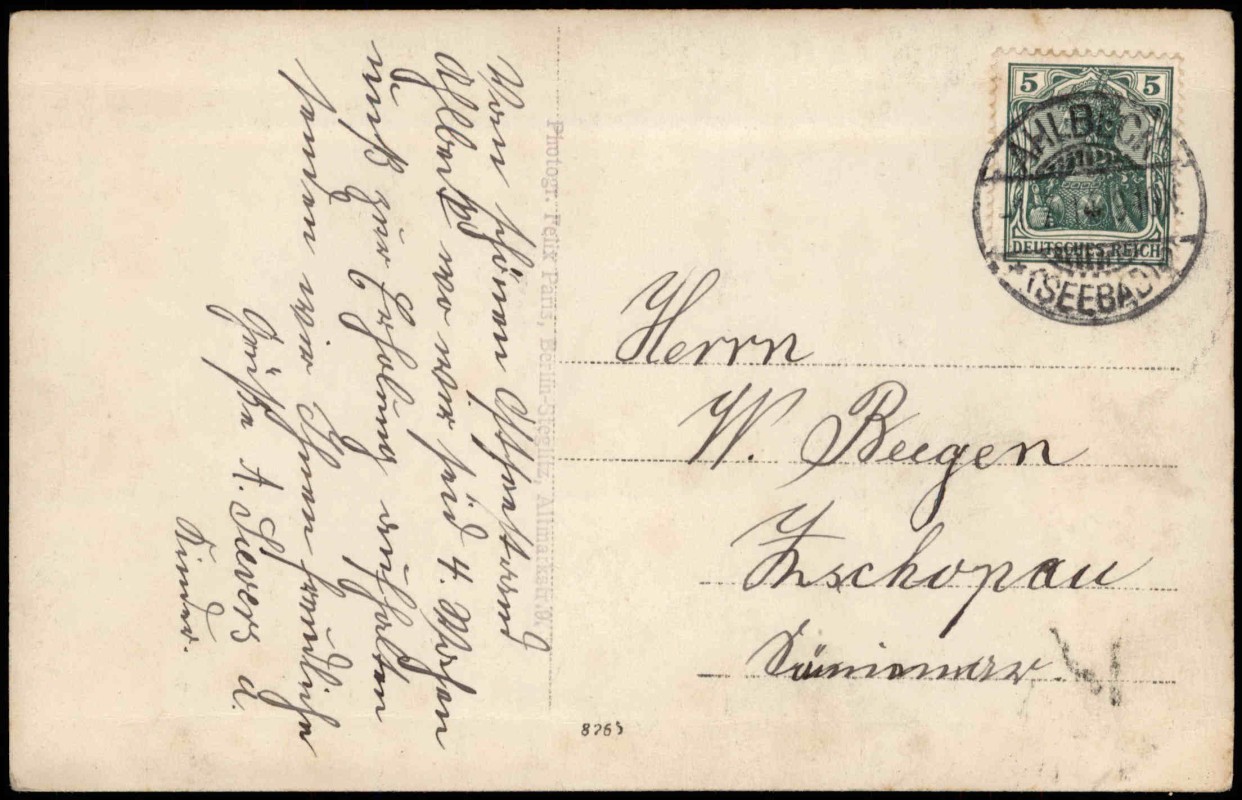 Vom schönen Ostseestrand
Ahlbeck wo wir seid 4. Wochen
uns zur Erholung aufhalten
senden wir Ihnen freundliche
Grüße A. Sievers u.
Kinder.
Photogr. Felix Paris, Berlin-Steglitz, Althmarkstr. 9.
8265
5 5
DEUTSCHES REICH
AHLBECK
(SEEBAD)
Herrn
W. Beegen
Zschopau